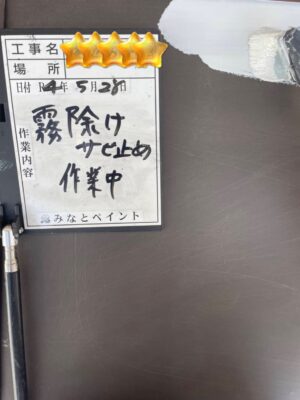 工事名
場所
日付 R4年5月28日
作業内容
霧除け
サビ止め
作業中
みなとペイント